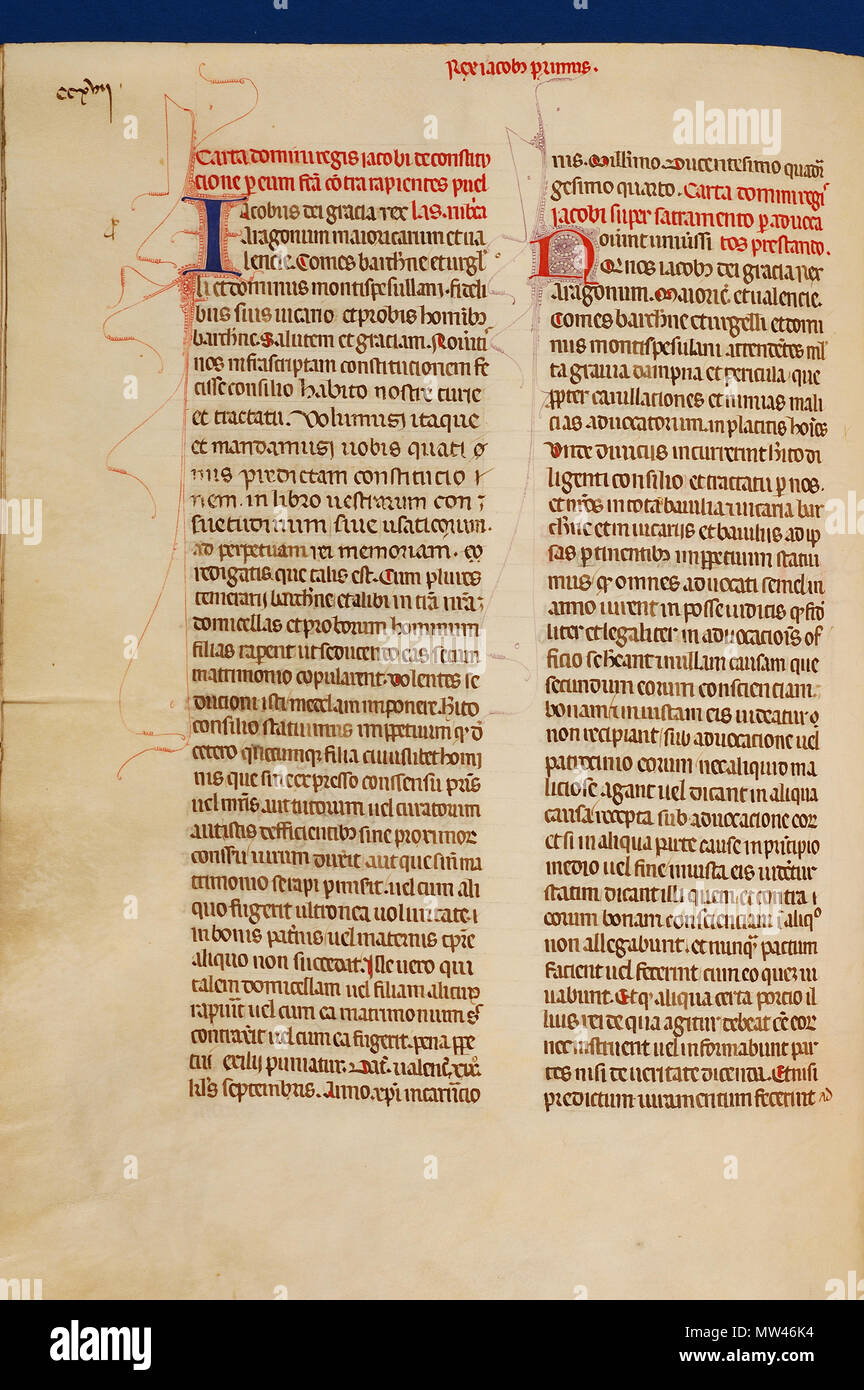 Rex iacob primus.
ccxvij
Carta domini regis iacobi de constitu
cione per eum facta contra rapientes puel
Iacobus dei gracia rex las. in barcha
aragonum maioricarum et ua
lencie. Comes barchne et urgl
li et dominus montispesullani. fideli
bus suis uicario et probis hominibus
barchne. Salutem et graciam. Noueritis
nos infrascriptam constitucionem fe
cisse consilio habito nostre curie
et tractatu. Volumus itaque
et mandamus uobis quati
nus predictam constitucio
nem. in libro uestrarum con
suetudinum siue usaticorum.
ad perpetuam rei memoriam.
redigatis que talis est. Cum plures
temerarij barchne et alibi in terra nostra
domicellas et proborum hominum
filias raperent ut seducendo eas secum
matrimonio copularent. Volentes se
ductioni isti medelam imponere. Hito
consilio statuimus imppetuum quod de
cetero quecumque filia cuiuslibet homi
nis que sine expresso conssensu patris
uel matris aut tutorum uel curatorum
aut istis defficientibus sine proximorum
conssensu uirum duxerit aut que sine ma
trimonio se rapi permiserit. uel cum ali
quo fugerit ultronea uoluntate.
in bonis paternis uel maternis tempore
aliquo non succedat. Ille uero qui
talem domicellam uel filiam alicuius
rapuerit uel cum ea matrimonium
contraxerit uel cum ea fugerit. pena perpe
tui exilij puniatur. Dat. ualencie.
kls septembris. Anno xpi incarnacio
nis. Millimo Ducentesimo quadra
gesimo quarto. Carta domini regis
iacobi super sacramento per aduoca
Nouerint uniuersi tos prestando.
Quod nos iacobus dei gracia rex
aragonum. Maioricarum et ualencie.
Comes barchne et urgelli et domi
nus montispesulani. attendentes mul
ta grauia dampna et pericula que
propter cauillaciones et nimias mali
cias aduocatorum. in placitis homines
unde diuicijs incurrerint hito di
ligenti consilio et tractatu per nos.
et nostros in tota baiulia uicaria bar
chne et in uicarijs et baiulijs ad ip
sas pertinentibus imppetuum statui
mus quod omnes aduocati semel in
anno iurent in posse iudicis quod fide
liter et legaliter in aduocacionis of
ficio se habeant in ullam causam que
secundum eorum conscienciam
bonam iniustam eis uideatur
non recipiant sub aduocacione uel
patrocinio eorum nec aliquid ma
liciose agant uel dicant in aliqua
causa recepta sub aduocacione eorum
et si in aliqua parte cause in principio
medio uel fine iniusta eis uidetur
statim dicant illi quem et contra
eorum bonam conscienciam in aliquo
non allegabunt. et nunquam pactum
facient uel fecerint cum eo quem iu
uabunt. Et quod aliqua certa porcio il
lius rei de qua agitur debeat esse eorum
nec instruent uel informabunt par
tes nisi de ueritate dicenda. Et nisi
predictum iuramentum fecerint ad